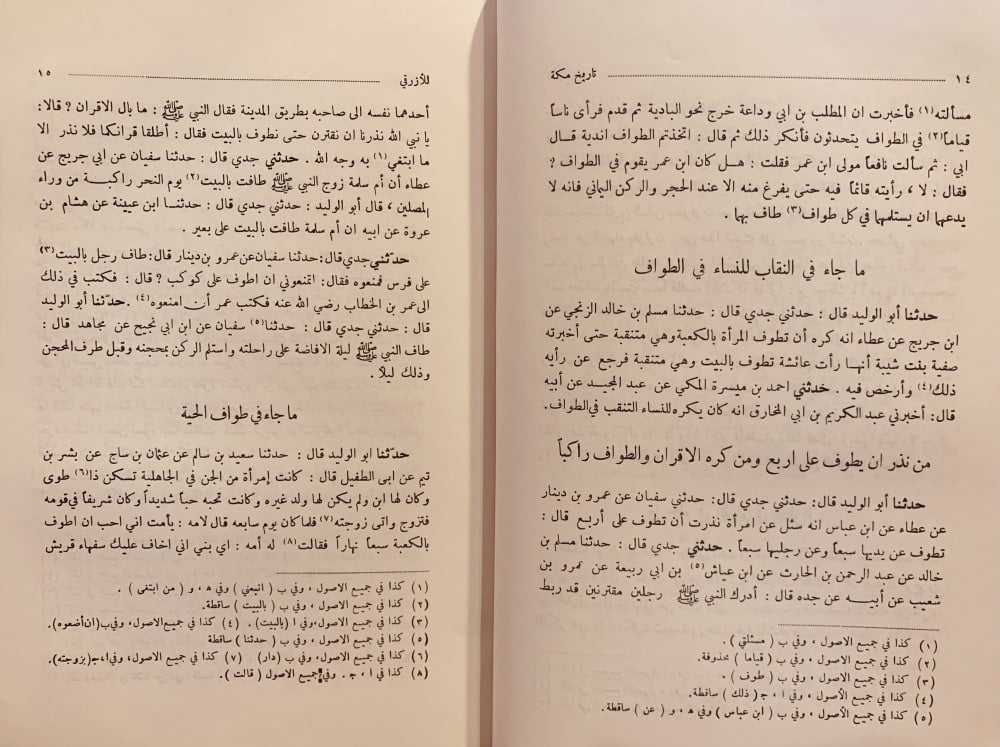 ١٤ تاريخ مكة
مسألته(١) فأخبرت ان المطلب بن ابي وداعة خرج نحو البادية ثم قدم فرأى ناساً
قياماً(٢) في الطواف يتحدثون فأنكر ذلك ثم قال : اتخذتم الطواف اندية قال
ابي : ثم سألت نافعاً مولى ابن عمر فقلت : هل كان ابن عمر يقوم في الطواف ?
فقال : لا ، رأيته قائماً فيه حتى يفرغ منه الا عند الحجر والركن اليماني فانه لا
يدعهما ان يستلمهما في كل طواف(٣) طاف بهما .
ما جاء في النقاب للنساء في الطواف
حدثنا أبو الوليد قال : حدثني جدي قال : حدثنا مسلم بن خالد الزنجي عن
ابن جريج عن عطاء انه كره أن تطوف المرأة بالكعبة وهي متنقبة حتى أخبرته
صفية بنت شيبة أنها رأت عائشة تطوف بالبيت وهي متنقبة فرجع عن رأيه
ذلك(٤) وأرخص فيه . حدثني احمد بن ميسرة المكي عن عبد المجيد عن أبيه
قال : أخبرني عبد الكريم بن ابي المخارق انه كان يكره للنساء التنقب في الطواف.
من نذر ان يطوف على اربع ومن كره الاقران والطواف راكباً
حدثنا أبو الوليد قال : حدثني جدي قال : حدثني سفيان عن عمرو بن دينار
عن عطاء عن ابن عباس انه سئل عن امرأة نذرت أن تطوف على أربع قال :
تطوف عن يديها سبعاً وعن رجليها سبعاً . حدثني جدي قال : حدثنا مسلم بن
خالد عن عبد الرحمن بن الحارث عن ابن عياش(٥) بن ابي ربيعة عن عمرو بن
شعيب عن أبيه عن جده قال : أدرك النبي ﷺ رجلين مقترنين قد ربط
(١) كذا في جميع الاصول ، وفي ب ( مسئلتي ) .
(٢) كذا في جميع الاصول ، وفي ب ( قياما ) محذوفة.
(٣) كذا في جميع الاصول ، وفي ب ( طوف ) .
(٤) كذا في جميع الأصول ، وفي ا ، ج ( ذلك ) ساقطة.
(٥) كذا في جميع الأصول ، وفي ب ( ابن عباس ) وفي ه ، و ( عن ) ساقطة.
للأزرقي ١٥
أحدهما نفسه الى صاحبه بطريق المدينة فقال النبي ﷺ : ما بال الاقران ? قالا:
يا نبي الله نذرنا ان نقترن حتى نطوف بالبيت فقال : أطلقا قرانكما فلا نذر الا
ما ابتغي(١) به وجه الله . حدثني جدي قال : حدثنا سفيان عن ابي جريج عن
عطاء أن أم سلمة زوج النبي ﷺ طافت بالبيت(٢) يوم النحر راكبة من وراء
المصلين ، قال أبو الوليد : حدثني جدي قال : حدثنا ابن عيينة عن هشام بن
عروة عن ابيه ان أم سلمة طافت بالبيت على بعير .
حدثني جدي قال : حدثنا سفيان عن عمرو بن دينار قال : طاف رجل بالبيت(٣)
على فرس فمنعوه فقال : اتمنعوني ان اطوف على كوكب ? قال : فكتب في ذلك
الى عمر بن الخطاب رضي الله عنه فكتب عمر أن امنعوه(٤) . حدثنا أبو الوليد
قال : حدثني جدي قال : حدثنا(٥) سفيان عن ابن ابي نجيح عن مجاهد قال :
طاف النبي ﷺ ليلة الافاضة على راحلته واستلم الركن بمحجنه وقبل طرف المحجن
وذلك ليلا .
ما جاء في طواف الحية
حدثنا ابو الوليد قال : حدثنا سعيد بن سالم عن عثمان بن ساج عن بشر بن
تيم عن ابى الطفيل قال : كانت إمرأة من الجن في الجاهلية تسكن ذا(٦) طوى
وكان لها ابن ولم يكن لها ولد غيره وكانت تحبه حباً شديداً وكان شريفاً في قومه
فتزوج واتى زوجته(٧) فلما كان يوم سابعه قال لامه : يأمت اني احب ان اطوف
بالكعبة سبعاً نهاراً فقالت(٨) له أمه : اي بني اني اخاف عليك سفهاء قريش
(١) كذا في جميع الاصول ، وفي ب ( انبعني ) وفي ه ، و ( من ابتغى ) .
(٢) كذا في جميع الاصول ، وفي ب ( بالبيت ) ساقطة.
(٣) كذا في جميع الاصول ،وفي ا (بالبيت) . (٤) كذا في جميع الاصول، وفي ب (ان أضعوه).
(٥) كذا في جميع الاصول ، وفي ب ( حدثنا ) ساقطة
(٦) كذا في جميع الاصول، وفي ب (دار) (٧) كذا في جميع الاصول، وفي ا،ج (بزوجته).
(٨) كذا في ا ، ج . وفي جميع الاصول ( قالت ) .